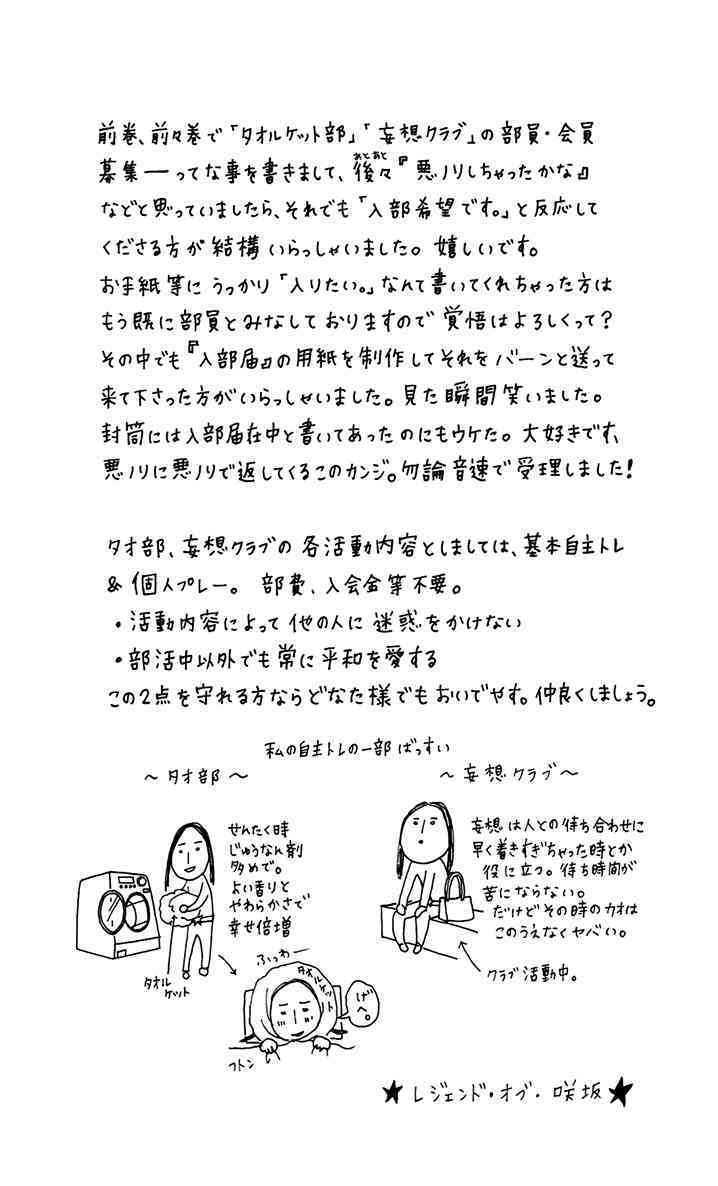 前巻、前々巻で「タオルケット部」「妄想クラブ」の部員・会員
募集――ってな事を書きまして、後々『悪ノリしちゃったかな』
あとあと
などと思っていましたら、それでも「入部希望です。」と反応して
くださる方が結構いらっしゃいました。嬉しいです。
お手紙等にうっかり「入りたい。」なんて書いてくれちゃった方は
もう既に部員とみなしておりますので覚悟はよろしくって?
その中でも『入部届』の用紙を制作してそれをバーンと送って
来て下さった方がいらっしゃいました。見た瞬間笑いました。
封筒には入部届在中と書いてあったのにもウケた。大好きです、
悪ノリに悪ノリで返してくるこのカンジ。勿論音速で受理しました!
タオ部、妄想クラブの各活動内容としましては、基本自主トレ
&個人プレー。 部費、入会金等不要。
・活動内容によって他の人に迷惑をかけない
・部活中以外でも常に平和を愛する
この2点を守れる方ならどなた様でもおいでやす。仲良くしましょう。
私の自主トレの一部ばっすい
〜タオ部〜
せんたく時
じゅうなん剤
多めで。
よい香りと
やわらかさで
幸せ倍増
タオル
ケット
ふっわー
タオルケット
げへ。
フトン
〜妄想クラブ〜
妄想は人との待ち合わせに
早く着きすぎちゃった時とか
役に立つ。待ち時間が
苦にならない。
だけどその時のカオは
このうえなくヤバい。
クラブ活動中。
★レジェンド・オブ・咲坂★